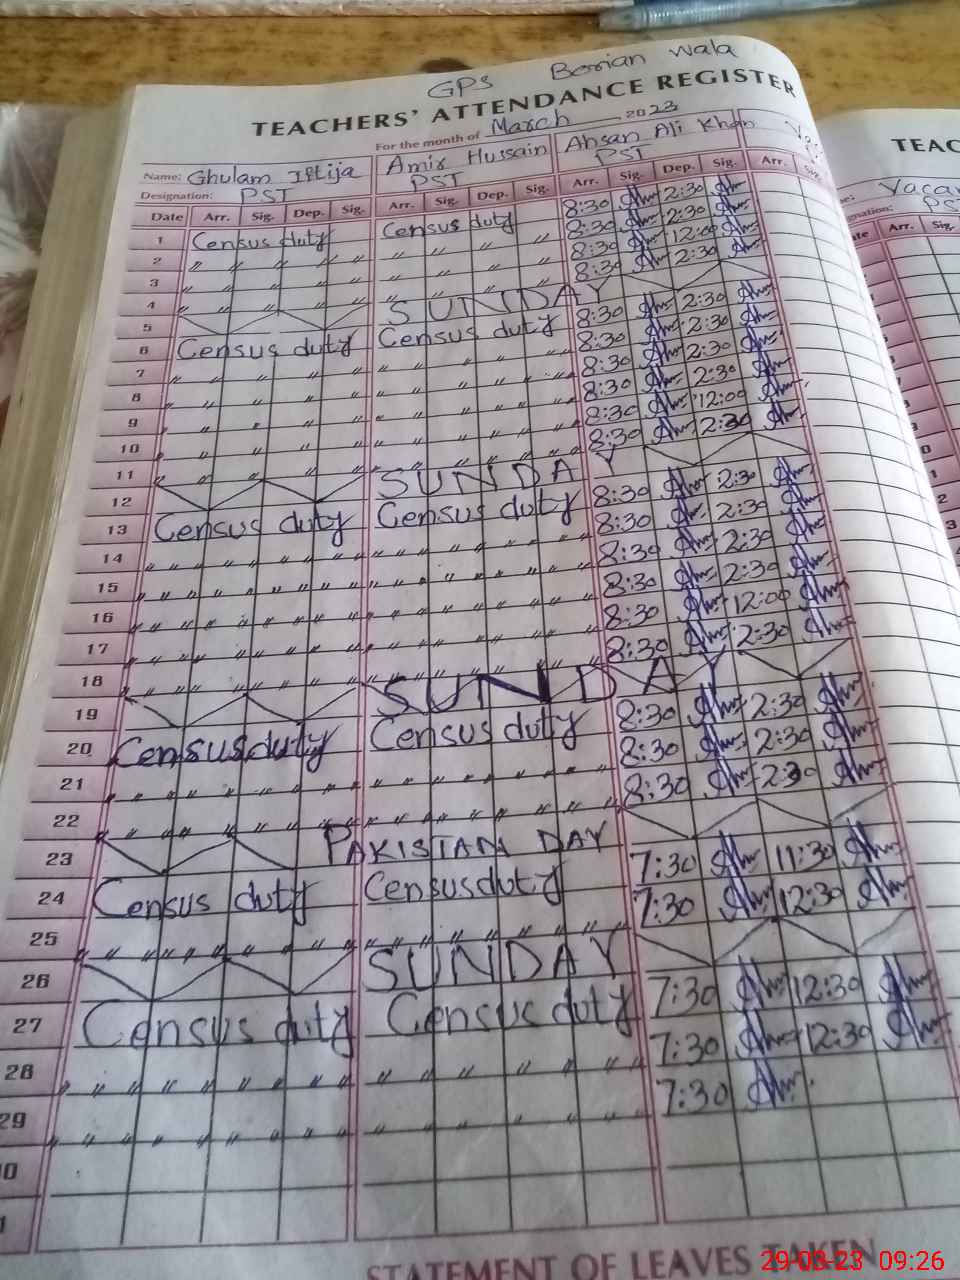 GPS Borian Wala
TEACHERS' ATTENDANCE REGISTER
For the month of March 2023
Name: Ghulam Iftija Amir Hussain Ahsan Ali Khan
Designation: PST PST PST
Date Arr. Sig. Dep. Sig. Arr. Sig. Dep. Sig. Arr. Sig. Dep. Sig. Arr. Sig.
1 Census duty Census duty 8:30 2:30
2 " " " " " " " " 8:30 2:30
3 " " " " " " " " 8:30 12:00
4 " " " " " " " " 8:30 2:30
5 SUNDAY
6 Census duty Census duty 8:30 2:30
7 " " " " " " " " 8:30 2:30
8 " " " " " " " " 8:30 2:30
9 " " " " " " " " 8:30 2:30
10 " " " " " " " " 8:30 12:00
11 " " " " " " " " 8:30 2:30
12 SUNDAY
13 Census duty Census duty 8:30 2:30
14 " " " " " " " " 8:30 2:30
15 " " " " " " " " 8:30 2:30
16 " " " " " " " " 8:30 2:30
17 " " " " " " " " 8:30 12:00
18 " " " " " " " " 8:30 2:30
19 SUNDAY
20 Census duty Census duty 8:30 2:30
21 " " " " " " " " 8:30 2:30
22 " " " " " " " " 8:30 2:30
23 PAKISTAN DAY
24 Census duty Census duty 7:30 11:30
25 " " " " " " " " 7:30 12:30
26 SUNDAY
27 Census duty Census duty 7:30 12:30
28 " " " " " " " " 7:30 12:30
29 " " " " " " " " 7:30
STATEMENT OF LEAVES TAKEN
TEAC
Arr. Sig.
29-03-23 09:26